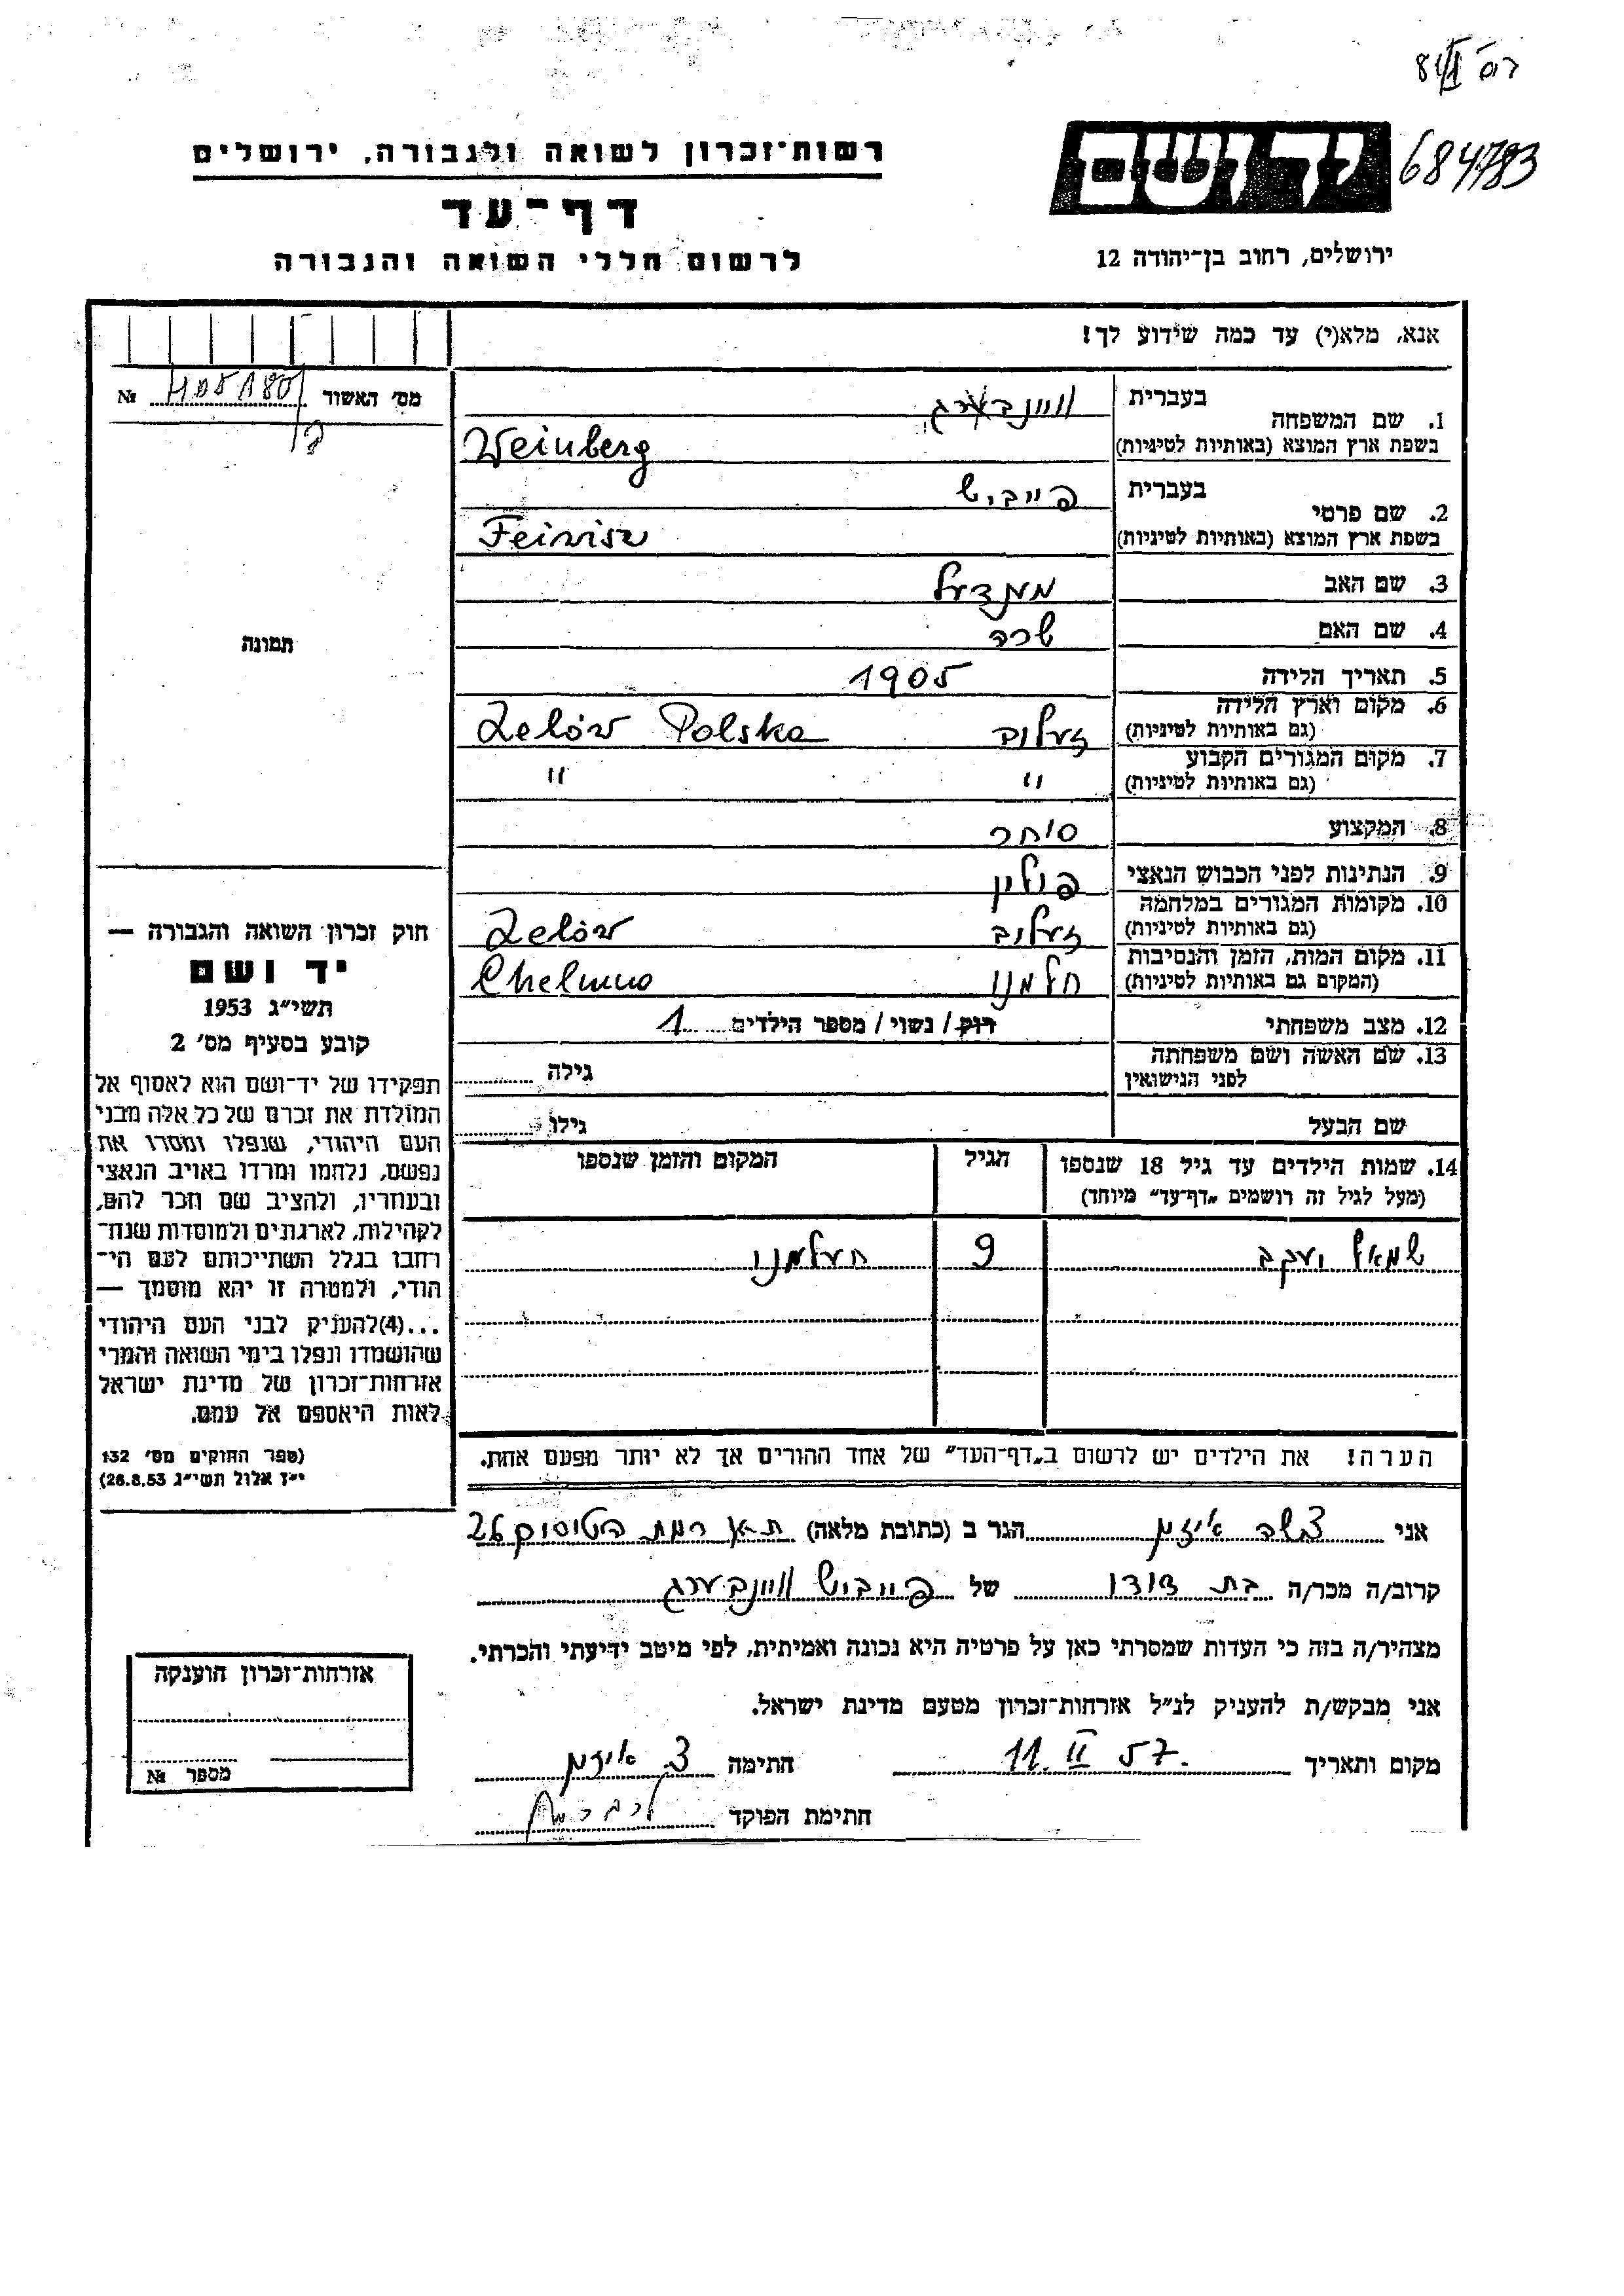 רשות־זכרון לשואה ולגבורה, ירושלים
יד ושם
684783
דף־עד
לרשום חללי השואה והגבורה
ירושלים, רחוב בן־יהודה 12
אנא, מלא(י) עד כמה שידוע לך!
מס׳ האשור №
1. שם המשפחה
בעברית וויינבערג
בשפת ארץ המוצא (באותיות לטיניות) Weinberg
2. שם פרטי
בעברית פייביש
בשפת ארץ המוצא (באותיות לטיניות) Feiwisz
3. שם האב מענדעל
4. שם האם שרה
5. תאריך הלידה 1905
6. מקום וארץ הלידה
(גם באותיות לטיניות) זעלוב Zelów Polska
7. מקום המגורים הקבוע
(גם באותיות לטיניות) " "
8. המקצוע סוחר
9. הנתינות לפני הכבוש הנאצי פולין
10. מקומות המגורים במלחמה
(גם באותיות לטיניות) זעלוב Zelów
11. מקום המות, הזמן והנסיבות
(המקום גם באותיות לטיניות) חלמנו Chelmno
12. מצב משפחתי רוק/ נשוי/ מספר הילדים 1
13. שם האשה ושם משפחתה
לפני הנישואין גילה
שם הבעל גילו
14. שמות הילדים עד גיל 18 שנספו
(מעל לגיל זה רושמים „דף־עד״ מיוחד)
הגיל
המקום והזמן שנספו
שמואל יעקב 9 חעלמנו
הערה! את הילדים יש לרשום ב„דף־העד״ של אחד ההורים אך לא יותר מפעם אחת.
תמונה
חוק זכרון השואה והגבורה —
יד ושם
תשי״ג 1953
קובע בסעיף מס׳ 2
תפקידו של יד־ושם הוא לאסוף אל
המולדת את זכרם של כל אלה מבני
העם היהודי, שנפלו ומסרו את
נפשם, נלחמו ומרדו באויב הנאצי
ובעוזריו, ולהציב שם וזכר להם,
לקהילות, לארגונים ולמוסדות שנח־
רבו בגלל השתייכותם לעם הי־
הודי, ולמטרה זו יהא מוסמך —
...(4) להעניק לבני העם היהודי
שהושמדו ונפלו בימי השואה והמרי
אזרחות־זכרון של מדינת ישראל
לאות היאספם אל עמם.
(ספר החוקים מס׳ 132
י״ז אלול תשי״ג 28.8.53)
אני הגר ב (כתובת מלאה) ת״א רמת 26
קרוב/ה מכר/ה בת דודו של פייביש וויינבערג
מצהיר/ה בזה כי העדות שמסרתי כאן על פרטיה היא נכונה ואמיתית, לפי מיטב ידיעתי והכרתי.
אני מבקש/ת להעניק לנ״ל אזרחות־זכרון מטעם מדינת ישראל.
מקום ותאריך 11. II 57. חתימה
חתימת הפוקד
אזרחות־זכרון הוענקה
מספר №